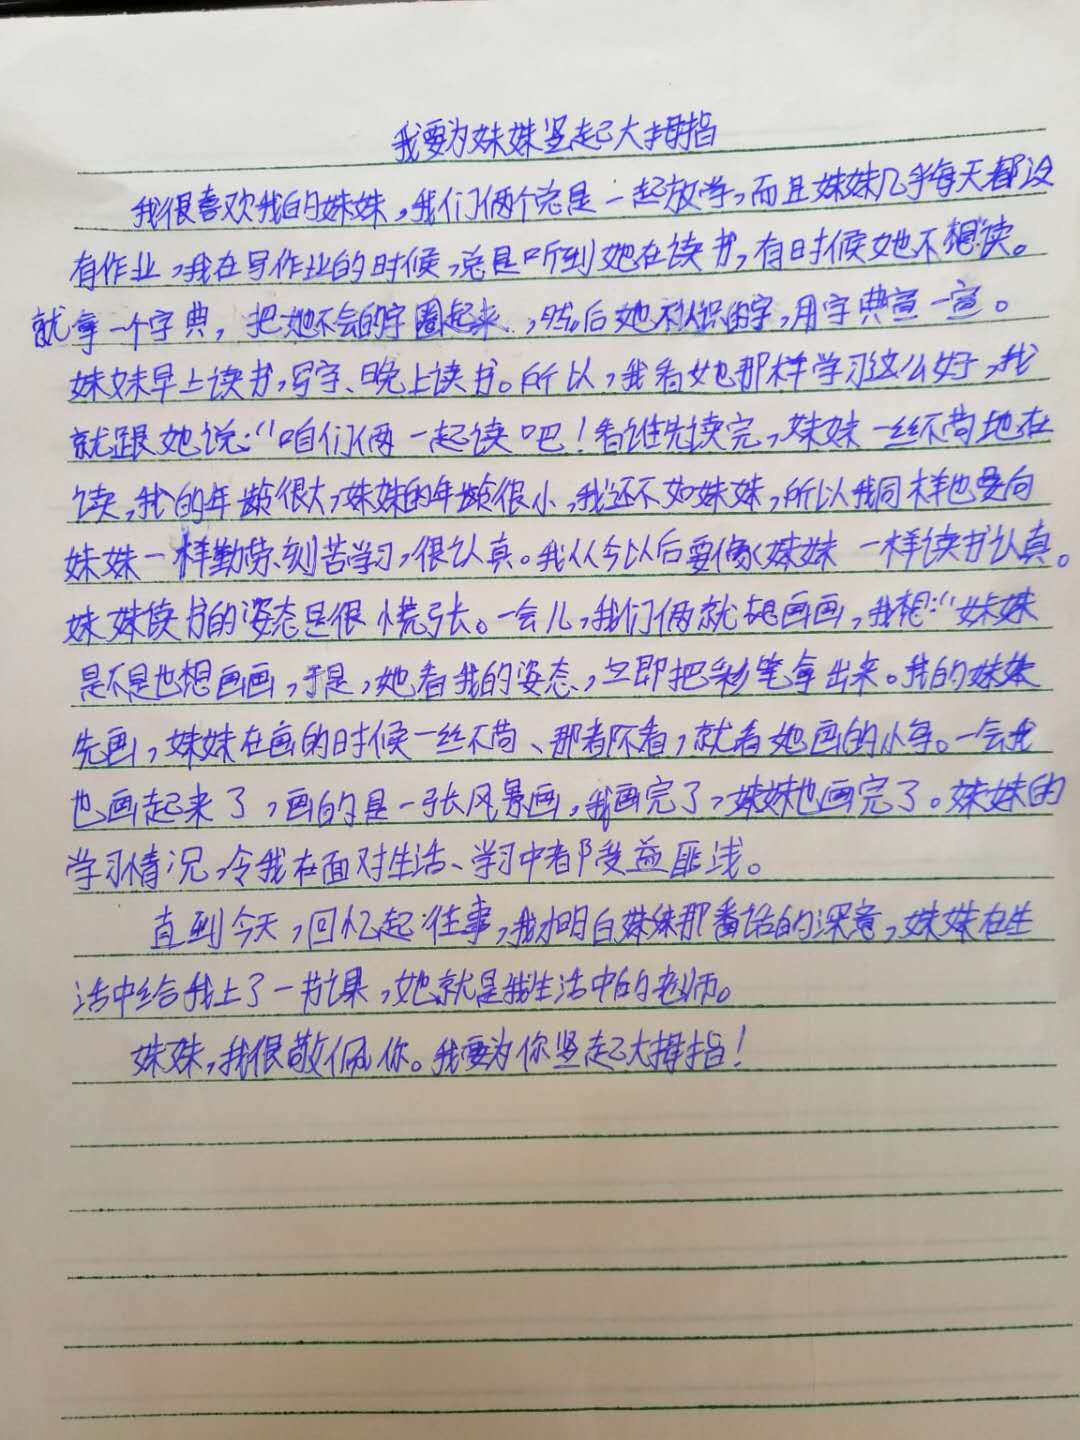 我要为妹妹竖起大拇指
我很喜欢我的妹妹，我们俩个总是一起放学，而且妹妹几乎每天都没
有作业，我在写作业的时候，总是听到她在读书，有时候她不想读。
就拿一个字典，把她不会的字圈起来，然后她不认识的字，用字典查一查。
妹妹早上读书，写字、晚上读书。所以，我看她那样学习这么好，我
就跟她说：“咱们俩一起读吧！看谁先读完，妹妹一丝不苟地在
读，我的年龄很大，妹妹的年龄很小，我还不如妹妹，所以我同样也要向
妹妹一样勤劳、刻苦学习，很认真。我从今以后要像妹妹一样读书认真。
妹妹读书的姿态是很慌张。一会儿，我们俩就想画画，我想：“妹妹
是不是也想画画，于是，她看我的姿态，立即把彩笔拿出来。我的妹妹
先画，妹妹在画的时候一丝不苟、那都不看，就看她画的小鸟。一会我
也画起来了，画的是一张风景画，我画完了，妹妹也画完了。妹妹的
学习情况，令我在面对生活、学习中都受益匪浅。
直到今天，回忆起往事，我才明白妹妹那番话的深意，妹妹在生
活中给我上了一节课，她就是我生活中的老师。
妹妹，我很敬佩你。我要为你竖起大拇指！